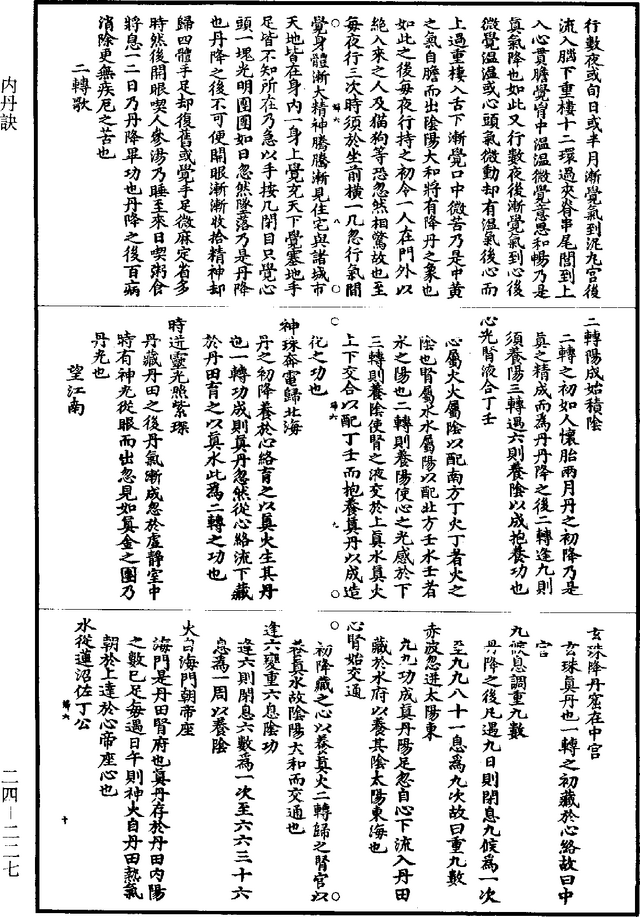 行數夜或旬日或半月漸覺氣到泥九宮後
流入腦下重樓十二環過夾脊串尾閭到上
入心貫膽覺胷中溫溫微覺意思和暢乃是
真氣降也如此又行數夜後漸覺氣到心後
微覺溫溫或心頭氣微動却有溫氣後心而
上過重樓入舌下漸覺口中微苦乃是中黃
之氣自膽而出陰陽大和將有降丹之象也
如此之後每夜行持之初令一人在門外以
絕入來之人及猫狗等恐忽然相驚故也至
每夜行三次時須於坐前橫一几忽行氣間
覺身體漸大精神騰騰漸見住宅與諸城市
天地皆在身內一身上覺充天下覺塞地手
足皆不知所在乃急以手按几閉目只覺心
頭一塊光明團團如日忽然隊落乃是丹降
也丹降之後不可便開眼漸漸收拾精神却
歸四體手足却復舊或覺手足微麻定省多
時然後開眼喫人參湯乃睡至來日喫粥食
將息一二日乃丹降畢功也丹降之後百病
消除更無疾厄之苦也
二轉歌
二轉陽成始積陰
二轉之初如人懷胎兩月丹之初降乃是
真之精成而為丹丹降之後二轉逢九則
須養陽三轉遇六則養陰以成抱養功也
心光腎液合丁壬
心屬火火屬陰以配南方丁火丁者火之
陰也腎屬水水屬陽以配北方壬水壬者
水之陽也二轉則養陽使心之光感於下
三轉則養陰使腎之液交於上真水真火
上下交合以配丁壬而抱養真丹以成造
化之功也
神珠奔電歸北海
丹之初降養於心絡育之以真火生其丹
也一轉功成則真丹忽然從心絡流下藏
於丹田育之以真水此為二轉之功也
時逆靈光照紫琛
丹藏丹田之後丹氣漸成忽於虛靜室中
時有神光從眼而出忽見如真金之圈乃
丹光也
望江南
玄珠降丹窟在中宮
玄珠真丹也一轉之初藏於心絡故曰中
宮
九候息調重九數
丹降之後凡遇九日則閉息九候為一次
至九九八十一息為九次故曰重九數
赤波忽迸太陽東
九九功成真丹陽足忽自心下流入丹田
藏於水府以養其陰太陽東海也
心腎始交通
初降藏之心以養真火二轉歸之腎宮以
養真水故陰陽大和而交通也
逢六變重六息陰功
逢六則閉息六數為一次至六六三十六
息為一周以養陰
大白海門朝帝座
海門是丹田腎府也真丹存於丹田內陽
之數已足每遇日午則神火自丹田熱氣
朝於上達於心帝座心也
水從蓮沼佐丁公
内丹訣
二四—二二七